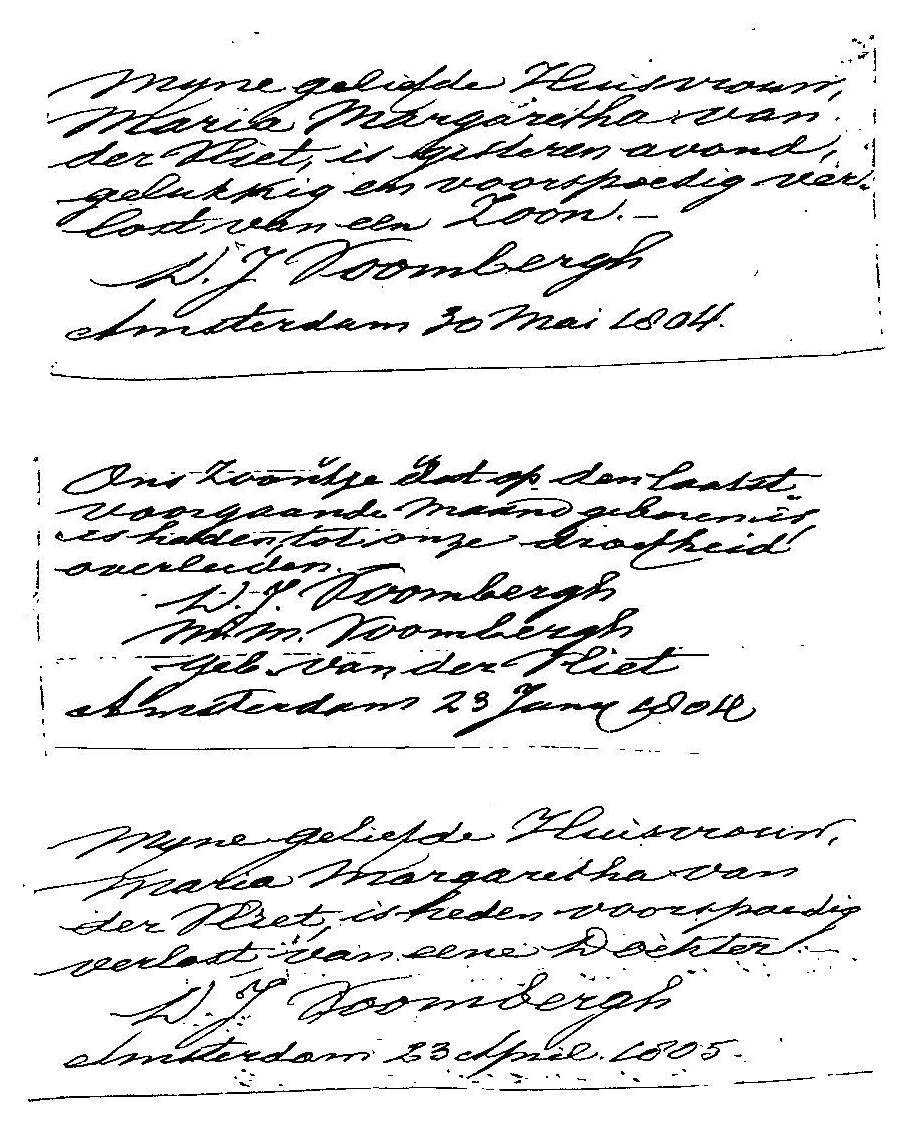 Myne geliefde Huisvrouw,
Maria Margaretha van
der Vliet, is gisteren avond,
gelukkig en voorspoedig ver-
lost van een Zoon. —
W. J. Voombergh
Amsterdam 30 Mai 1804.
Ons Zoontje dat op den laatst
voorgaande Maand geboren is,
is heden, tot onze droefheid
overleiden.
W. J. Voombergh
M. M. Voombergh
geb. van der Vliet
Amsterdam 23 Juny 1804
Myne geliefde Huisvrouw,
Maria Margaretha van
der Vliet, is heden voorspoedig
verlost van eene Dochter. —
W. J. Voombergh
Amsterdam 23 April. 1805.